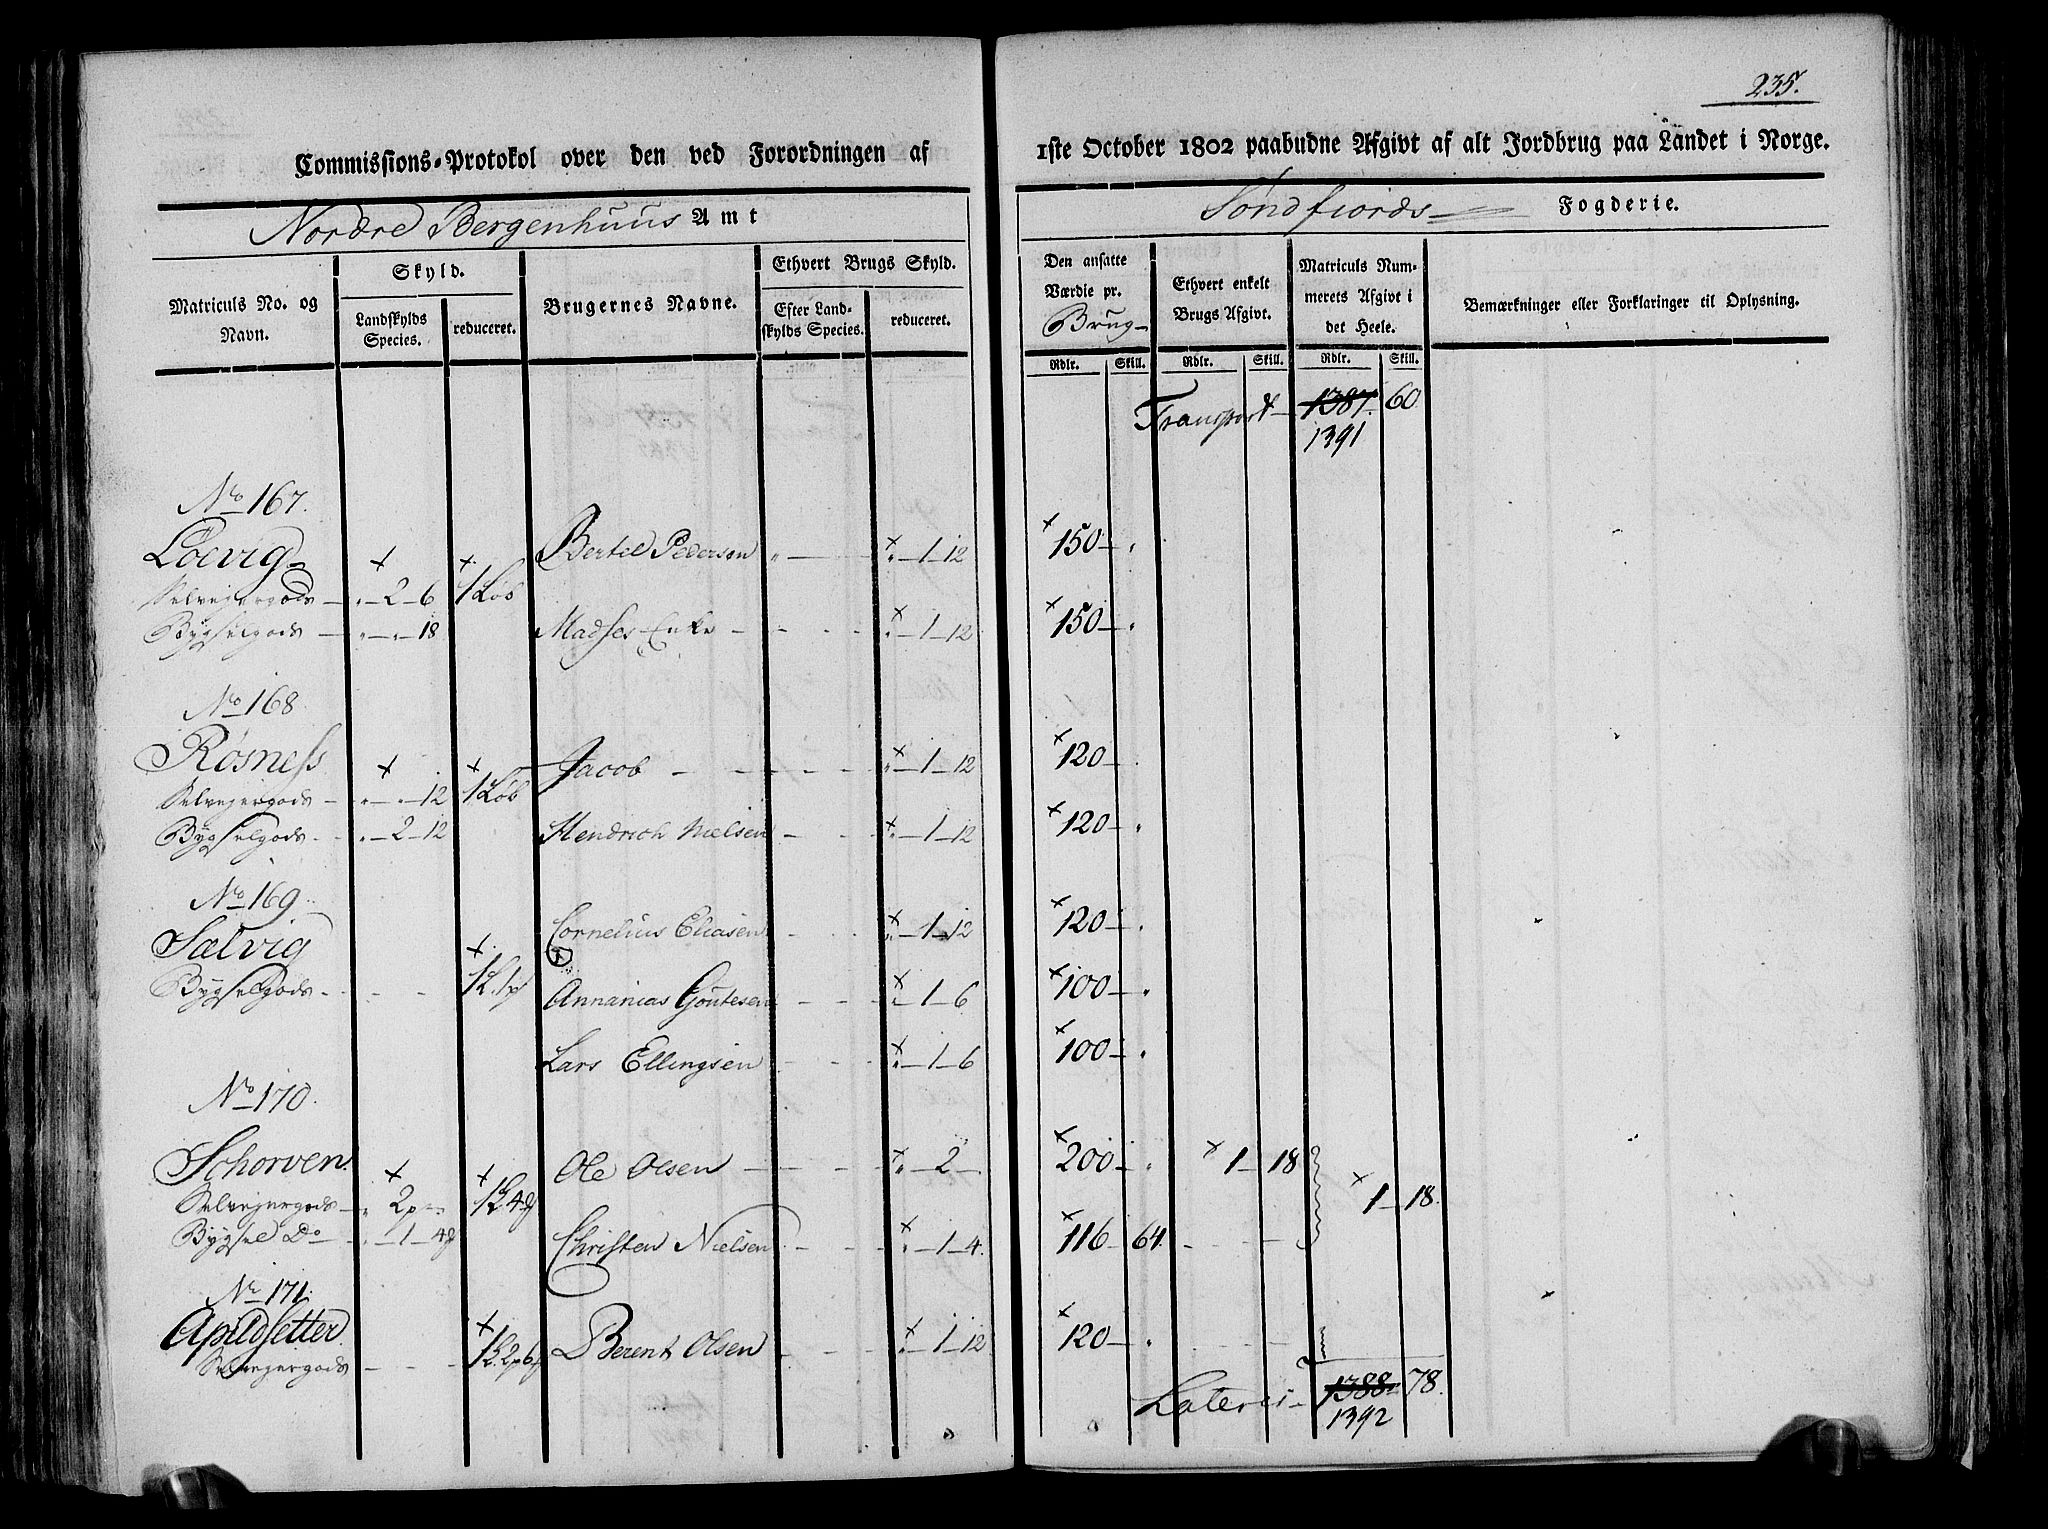 235.
Commissions-Protokol over den ved Forordningen af
1ste October 1802 paabudne Afgivt af alt Jordbrug paa Landet i Norge.
Nordre Bergenhuus Amt
Søndfiords Fogderie.
Matriculs No. og Navn.
Skyld.
Landskylds Species.
reduceret.
Brugernes Navne.
Ethvert Brugs Skyld.
Efter Landskylds Species.
reduceret.
Den ansatte Værdie pr. Brug
Ethvert enkelt Brugs Afgivt.
Matriculs Nummerets Afgivt i det Heele.
Bemærkninger eller Forklaringer til Oplysning.
Rdlr. Skill. Rdlr. Skill. Rdlr. Skill.
Transport 1387. 60.
1391
No 167.
Løevig
Bertel Pedersen " — × " — 1 — 12 × 150 — "
Selvejergods — × " — 2 — 6 × 1 Løb
Bygselgods — " — " — 18 Madses Enke × " — 1 — 12 × 150 — "
No 168
Røsness
Jacob × " — 1 — 12 × 120 — "
Selvejergods — × " — " — 12 × 1 Løb
Bygselgods — " — 2 — 12 Hendrich Nielsen × " — 1 — 12 × 120 — "
No 169
Sælvig
Cornelius Eliasen × " — 1 — 12 × 120 — "
Bygselgods × 1 L. 1 p Annanias Goutesen × " — 1 — 6 × 100 — "
Lars Ellingsen × " — 1 — 6 × 100 — "
No 170.
Schorven
Ole Olsen × " — 2 — × 200 — " × 1 — 18
Selvejergods — × " 2 p × 1 L 4 × 1 — 18.
Bygsel Do — " — 1 — 4 Christen Nielsen × " — 1 — 4. × 116 — 64.
No 171.
Apaldsetter
Selvejergods × 1 L. 2 p 6 Berent Olsen × " — 1 — 12 × 120 — "
Lateris 1388 — 78.
1392